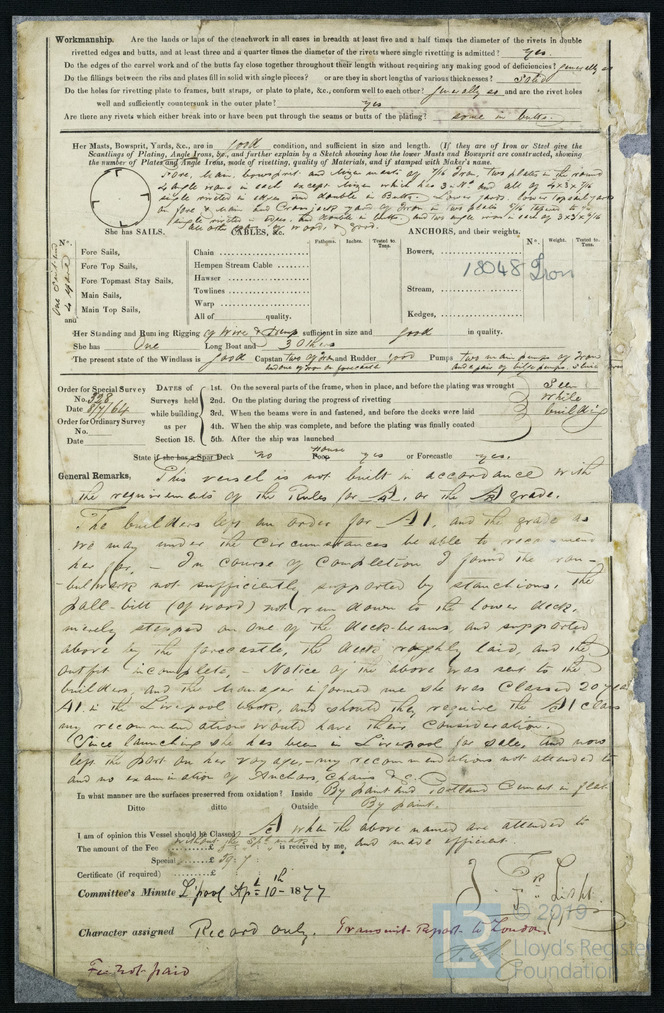 Workmanship. Are the lands or laps of the clenchwork in all cases in breadth at least five and a half times the diameter of the rivets in double
rivetted edges and butts, and at least three and a quarter times the diameter of the rivets where single rivetting is admitted? yes.
Do the edges of the carvel work and of the butts fay close together throughout their length without requiring any making good of deficiencies? generally so
Do the fillings between the ribs and plates fill in solid with single pieces? or are they in short lengths of various thicknesses? Solid
Do the holes for rivetting plate to frames, butt straps, or plate to plate, &c., conform well to each other? generally so and are the rivet holes
well and sufficiently countersunk in the outer plate? yes
Are there any rivets which either break into or have been put through the seams or butts of the plating? some in butts.
Her Masts, Bowsprit, Yards, &c., are in good condition, and sufficient in size and length. (If they are of Iron or Steel give the
Scantlings of Plating, Angle Irons, &c., and further explain by a Sketch showing how the lower Masts and Bowsprit are constructed, showing
the number of Plates and Angle Irons, mode of rivetting, quality of Materials, and if stamped with Maker's name.
Fore, Main, bowsprit and Mizen masts of 7/16 Iron, two plates in the round
4 angle irons in each except Mizen which has 3 No and all of 4x3x7/16
single riveted in edges and double in Butts. Lower yards lower topsail yards
on fore & Main and Crossjack yard of Iron in two plates
single riveted in edges and double in butts and two angle irons in each of 3x3x
all other of wood, & good.
She has SAILS. CABLES, &c. Fathoms. Inches. Tested to Tons. ANCHORS, and their weights.
N°. N°. Weight. Tested to Tons.
One Suit and
Fore Sails, Chain Bowers,
Fore Top Sails, Hempen Stream Cable 18048 Iron
Fore Topmast Stay Sails, Hawser
Main Sails, Towlines Stream,
Main Top Sails, Warp
and All of quality. Kedges,
Her Standing and Running Rigging of Wire & Hemp sufficient in size and good in quality.
She has One Long Boat and 3 Others
The present state of the Windlass is good Capstan two of Iron and Rudder good Pumps two main pumps of Iron
and one of iron on forecastle and a pair of bilge pumps
Order for Special Survey
No. 328
Date 8/7/64
Order for Ordinary Survey
No.
Date
DATES of Surveys held while building as per Section 18.
1st. On the several parts of the frame, when in place, and before the plating was wrought Seen
2nd. On the plating during the progress of rivetting while
3rd. When the beams were in and fastened, and before the decks were laid building
4th. When the ship was complete, and before the plating was finally coated
5th. After the ship was launched
State if she has a Spar Deck no House Poop yes or Forecastle yes.
General Remarks, This vessel is not built in accordance with
the requirements of the Rules for A1, or the A grade.
The builders left an order for A1 and the grade as
we may under the circumstances be able to recommend
her for, — In course of completion I found the main
bulwark not sufficiently supported by stanchions, the
pall-bitt (of wood) not run down to the lower deck,
merely stepped on one of the deck-beams, and supported
above by the forecastle, the deck roughly laid, and the
outfit incomplete, — Notice of the above was sent to the
builders, and the Manager informed me she was Classed 20 years
A1 in the Liverpool book, and should they require the A1 class
my recommendations would have their consideration.
Since launching she has been in Liverpool for sale, and now
left the port on her voyage, my recommendations not attended to
and no examination of Anchors, Chains &c.
In what manner are the surfaces preserved from oxidation? Inside By paint and Portland Cement in flat
Ditto ditto Outside By paint.
I am of opinion this Vessel should be Classed A when the above named are attended to
The amount of the Fee £ is received by me, and made efficient.
Special £
Certificate (if required) £
Committee's Minute L'pool Apl 10th 1877
Character assigned Record only. Transmit Report to London.
Fee not paid
© 2019
LR
Lloyd's Register
Foundation